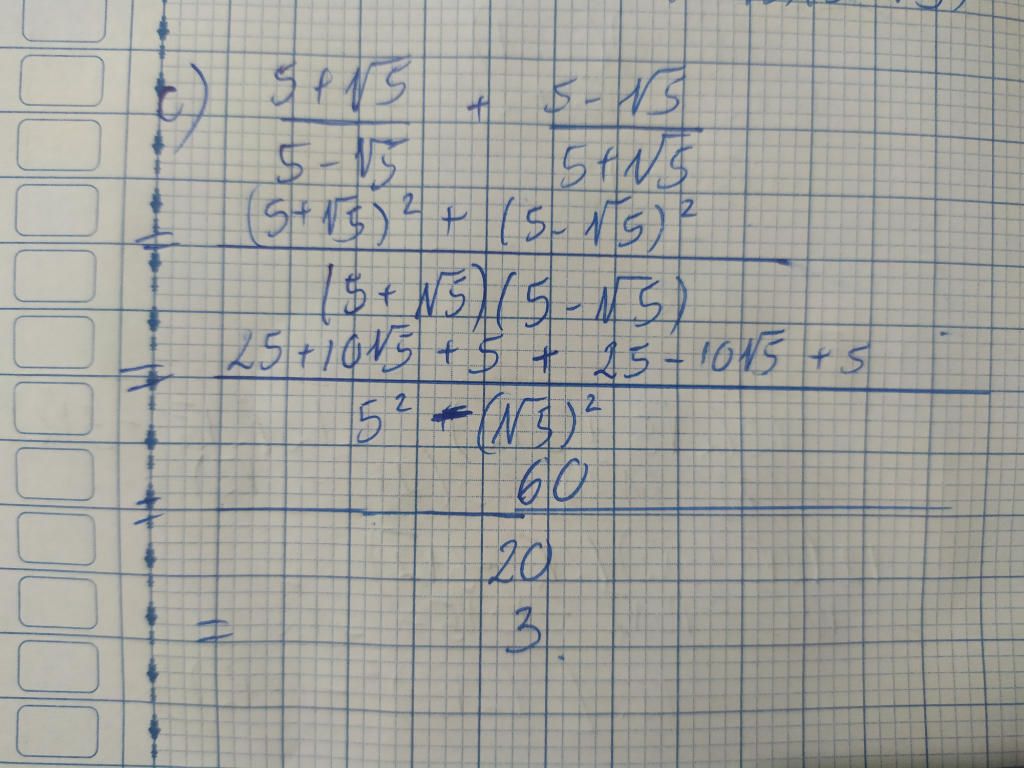 c) 5+√5 + 5-√5
5-√5 5+√5
= (5+√5)² + (5-√5)²
(5+√5)(5-√5)
= 25+10√5 + 5 + 25-10√5 +5
5² - (√5)²
= 60
20
= 3.